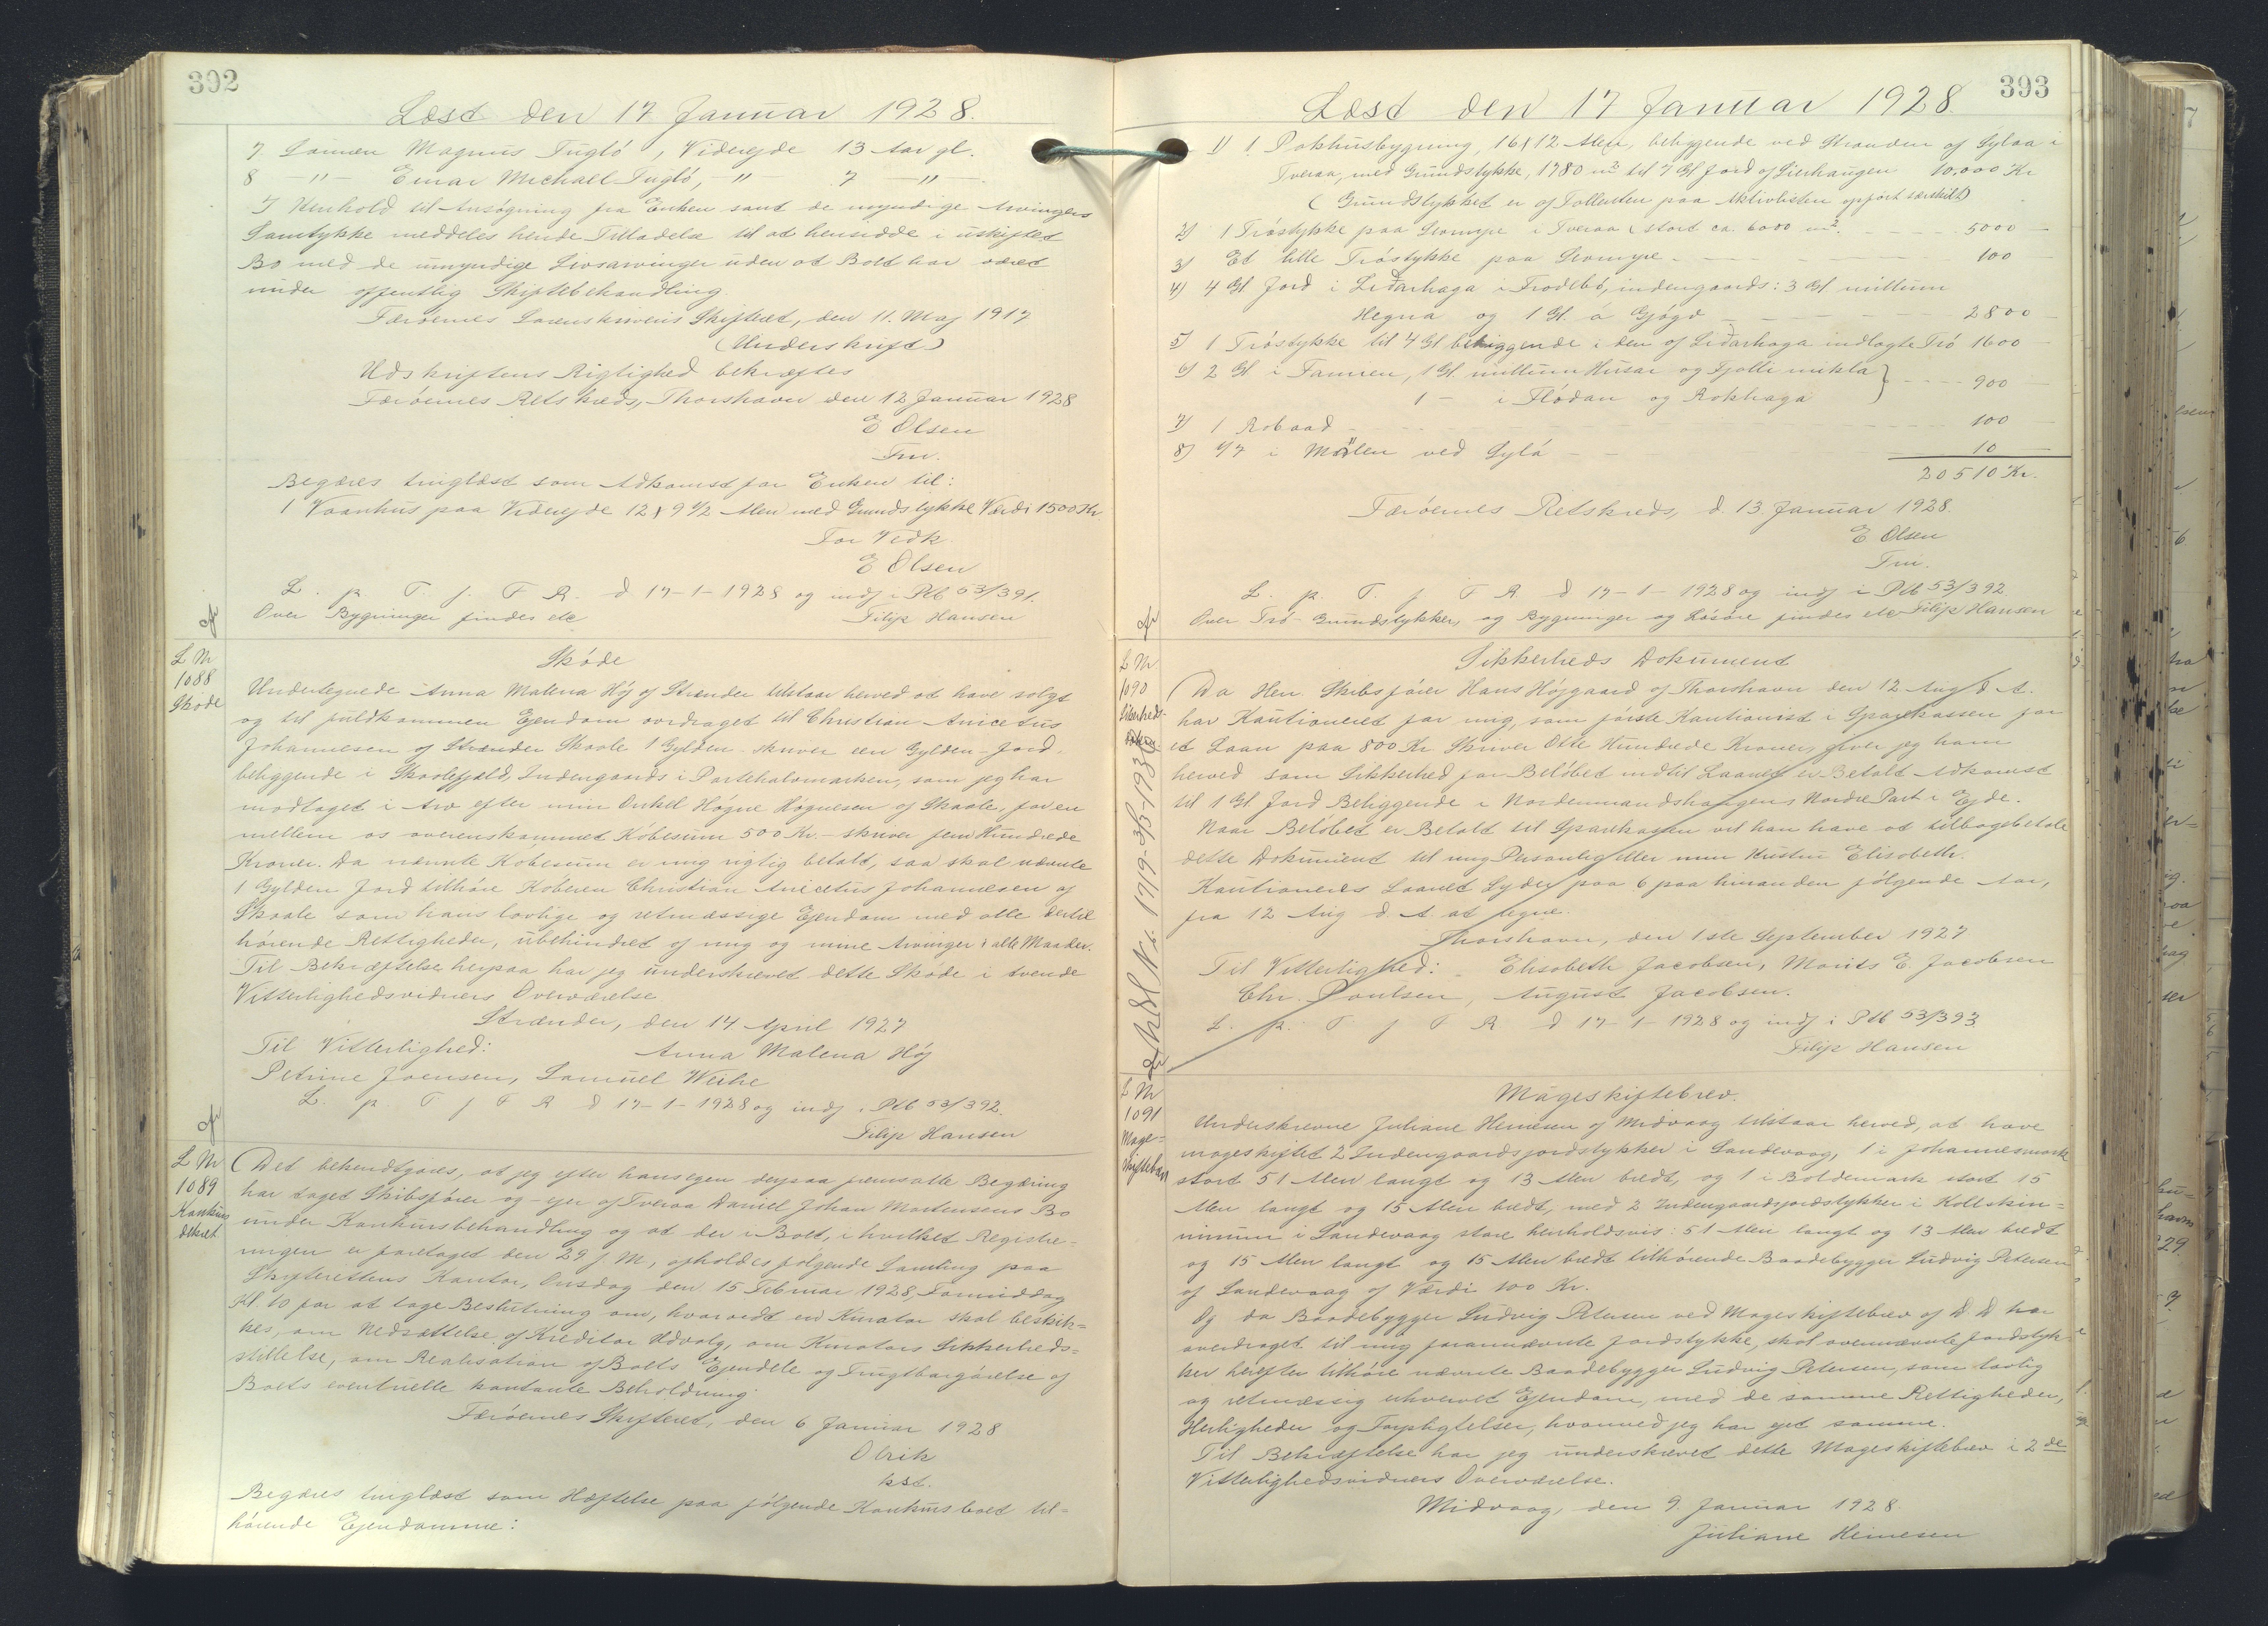 392
Læst den 17 Januar 1928.
7. Sønnen Magnus Fugló, Viderejde 13 Aar gl.
8 -"- Einar Michael Fugló, -"- 7 -"-
I Henhold til Ansøgning fra Enken samt de myndige Arvingers
Samtykke meddeles hende Tilladelse til at hensidde i uskiftet
Bo med de umyndige Livsarvinger uden at Boet har været
under offentlig Skiftebehandling.
Færøernes Sorenskriveris Skifteret, den 11. Maj 1917
(Underskrift)
Udskriftens Rigtighed bekræftes
Færøernes Retskreds, Thorshavn den 12 Januar 1928
E Olsen
Fm.
Begæres tinglæst som Adkomst for Enken til:
1 Vaanhus paa Viderejde 12 x 9 1/2 Alen med Grundstykke Værdi 1500 Kr
For Vedk.
E Olsen
L. p. T. f. F R. d 17-1-1928 og indf i Ptb 53/391.
Over Bygninger findes etc Filip Hansen
L Nr
1088
Skøde
Skóde
Undertegnede Anna Malena Høj af Strænder tilstaar herved at have solgt
og til fuldkommen Ejendom overdraget til Christian Anicetus
Johannesen af Strænder Skaale 1 Gylden - skriver een Gylden - Jord.
beliggende i Skaalefjæld, Indengaards i Partehalvmarken, som jeg har
modtaget i Arv efter min Onkel Høgne Høgnesen af Skaale, for en
mellem os overenskommet Købesum 500 Kr. - skriver fem Hundrede
Kroner. Da nævnte Købesum er mig rigtig betalt, saa skal nævnte
1 Gylden Jord tilhøre Køberen Christian Anicetus Johannesen af
Skaale som hans lovlige og retmæssige Ejendom med alle dertil
hørende Rettigheder, übehindret af mig og mine Arvinger i alle Maader.
Til Bekræftelse herpaa har jeg underskrevet dette Skøde i tvende
Vitterlighedsvidners Overværelse.
Strænder, den 14 April 1927
Til Vitterlighed: Anna Malena Høj
Petrine Joensen, Samuel Weihe
L. p. T f F R d 17-1-1928 og indf i Ptb 53/392.
Filip Hansen
L Nr
1089
Konkurs
dekret
Det bekendtgøres, at jeg efter hans egen derpaa fremsatte Begæring
har taget Skibsfører og -ejer af Tveraa Daniel Johan Mortensens Bo
under Konkursbehandling og at der i Boet, i hvilket Registre=
ringen er foretaget den 29 f M, afholdes følgende Samling paa
Skifterettens Kontor, Onsdag den 15 Februar 1928, Formiddag
Kl. 10 for at tage Beslutning om, hvorvidt en Kurator skal beskik=
kes, om Nedsættelse af Kreditor Udvalg, om Kurators Sikkerheds=
stillelse, om Realisation af Boets Ejendele og Frugtbargørelse af
Boets eventuelle kontante Beholdning.
Færøernes Skifteret, den 6 Januar 1928
Olrik
kst.
Begæres tinglæst som Hæftelse paa følgende Konkursboet til=
hørende Ejendomme:
393
Læst den 17 Januar 1928.
1) 1 Pakhusbygning, 16 x 12 Alen, beliggende ved Stranden af Sylaa i
Tveraa, med Grundstykke, 1780 m2 til 7 Gl Jord af Lierhaugen 10.000 Kr
(Grundstykket er af Fallenten paa Aktivlisten opført særskilt)
2) 1 Tróstykke paa Leomyre i Tveraa stort ca. 6000 m2. 5000 -
3) Et lille Tróstykke paa Leomyre - 100
4) 4 Gl Jord i Lidarhaga i Frodebó, indengaards: 3 Gl millum
Hegna og 1 Gl. á Gjógv 2800 -
5) 1 Tróstykke til 4 Gl beliggende i den af Lidarhaga indlagte Tró 1600 -
6) 2 Gl i Famien, 1 Gl. millum Húsar og Fjolli mikla
1 - i Flódan og Rokhaga 900
7) 1 Robaad 100
8) 1/7 i Mølen ved Sylá 10
20510 Kr.
Færøernes Retskreds, d. 13 Januar 1928.
E Olsen
Fm.
L. p. T. f F R. d 17-1-1928 og indf i Ptb 53/392.
Over Tró- Grundstykker, og Bygninger og Løsøre findes etc Filip Hansen
L Nr
1090
Sikerheds-
Dok.
Sikkerheds Dokument
Da Herr. Skibsfører Hans Højgaard af Thorshavn den 12 Aug d. A.
har Kautioneret for mig, som første Kautionist i Sparekassen for
et Laan paa 800 Kr Skriver Otte Hundrede Kroner, giver jeg ham
herved som Sikkerhed for Beløbet indtil Laanet er Betalt Adkomst
til 1 Gl. Jord Beliggende i Nordenmandshaugens Nordre Part i Ejde.
Naar Beløbet er Betalt til Sparekassen vil han have at tilbagebetale
dette Dokument til mig Personlig eller min Hustru Elisabeth.
Kautioneres Laanet Lyder paa 6 paa hinanden følgende Aar,
fra 12 Aug d. A. at regne.
Thorshavn, den 1ste September 1927
Til Vitterlighed: Elisabeth Jacobsen, Morits E. Jacobsen
Chr. Poulsen, August Jacobsen.
L. p. T f F R d 17-1-1928 og indf i Ptb 53/393
Filip Hansen
L Nr
1091
Mage=
skiftebrev
Mageskiftebrev.
Underskrevne Juliane Heinesen af Midvaag tilstaar herved, at have
mageskiftet 2 Indengaardsjordstykker i Sandevaag, 1 i Johannesmark
stort 51 Alen langt og 13 Alen bredt, og 1 i Boldemark stort 15
Alen langt og 15 Alen bredt, med 2 Indengaardsjordstykker i Kollskin=
num i Sandevaag store henholdsvis: 51 Alen langt og 13 Alen bredt
og 15 Alen langt og 15 Alen bredt tilhørende Baadebygger Ludvig Petersen
af Sandevaag af Værdi 100 Kr.
Og da Baadebygger Ludvig Petersen ved Mageskiftebrev af D. D. har
overdraget til mig forannævnte Jordstykke, skal ovennævnte Jordstyk=
ker herefter tilhøre nævnte Baadebygger Ludvig Petersen, som lovlig
og retmæssig erhvervet Ejendom, med de samme Rettigheder,
Herligheder og Forpligtelser, hvormed jeg har ejet samme.
Til Bekræftelse har jeg underskrevet dette Mageskiftebrev i 2de
Vitterlighedsvidners Overværelse.
Midvaag, den 9. Januar 1928.
Juliane Heinesen